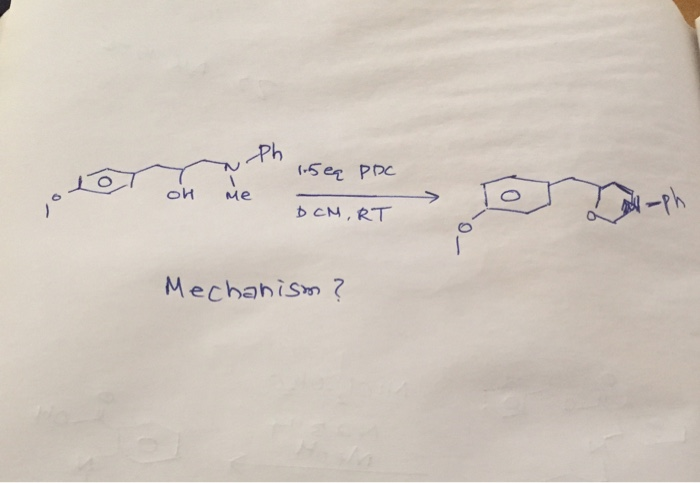 Ph
1.5 eq PDC
N
O
OH
Me
DCM, RT
O
N-Ph
O
Mechanism?